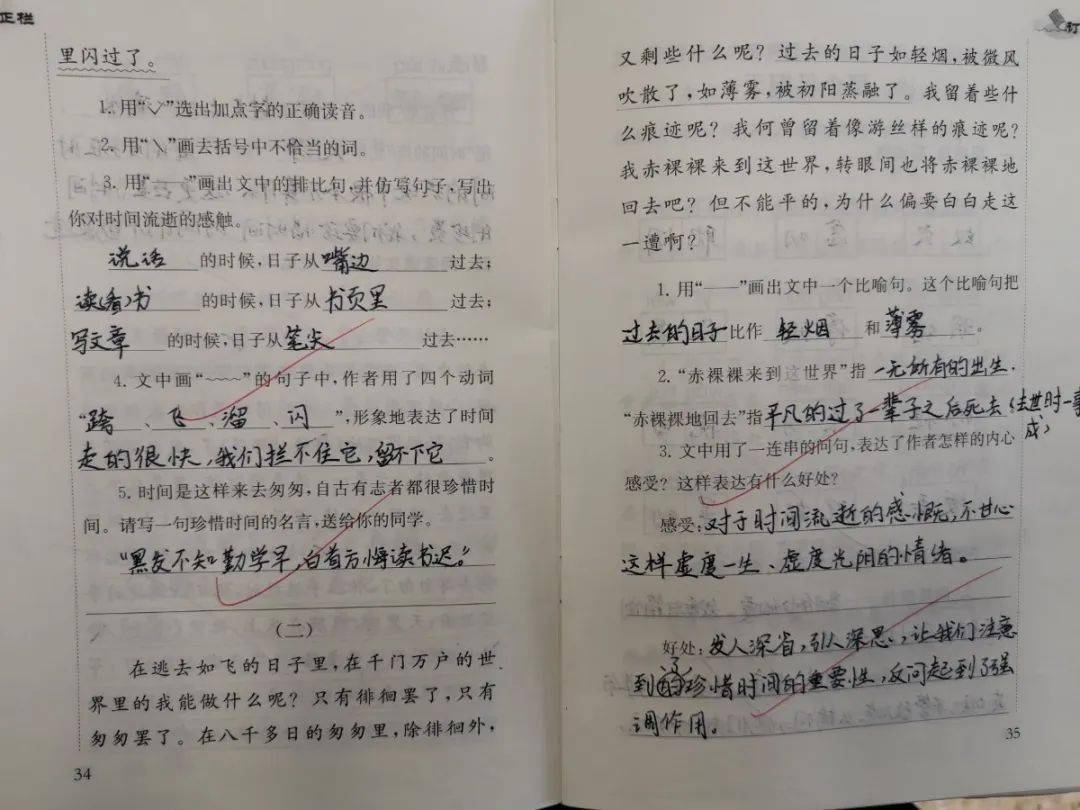 正栏
里闪过了。
1. 用“✓”选出加点字的正确读音。
2. 用“＼”画去括号中不恰当的词。
3. 用“——”画出文中的排比句，并仿写句子，写出
你对时间流逝的感触。
说话 的时候，日子从 嘴边 过去；
读(看)书 的时候，日子从 书页里 过去；
写文章 的时候，日子从 笔尖 过去……
4. 文中画“~~~~”的句子中，作者用了四个动词
“跨、飞、溜、闪”，形象地表达了时间
走的很快，我们拦不住它，留不下它。
5. 时间是这样来去匆匆，自古有志者都很珍惜时
间。请写一句珍惜时间的名言，送给你的同学。
“黑发不知勤学早，白首方悔读书迟。”
（二）
在逃去如飞的日子里，在千门万户的世
界里的我能做什么呢？只有徘徊罢了，只有
匆匆罢了。在八千多日的匆匆里，除徘徊外，
34
订
又剩些什么呢？过去的日子如轻烟，被微风
吹散了，如薄雾，被初阳蒸融了。我留着些什
么痕迹呢？我何曾留着像游丝样的痕迹呢？
我赤裸裸来到这世界，转眼间也将赤裸裸地
回去吧？但不能平的，为什么偏要白白走这
一遭啊？
1. 用“——”画出文中一个比喻句。这个比喻句把
过去的日子 比作 轻烟 和 薄雾。
2. “赤裸裸来到这世界”指 一无所有的出生．
“赤裸裸地回去”指 平凡的过了一辈子之后死去(去世时一事
成)
3. 文中用了一连串的问句，表达了作者怎样的内心
感受？这样表达有什么好处？
感受：对于时间流逝的感慨，不甘心
这样虚度一生、虚度光阴的情绪。
好处：发人深省，引人深思，让我们注意
到了珍惜时间的重要性，反问起到了强
调作用。
35